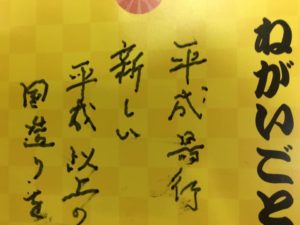 ねがいごと
平成最行
新しい
平成以上の
国造りを